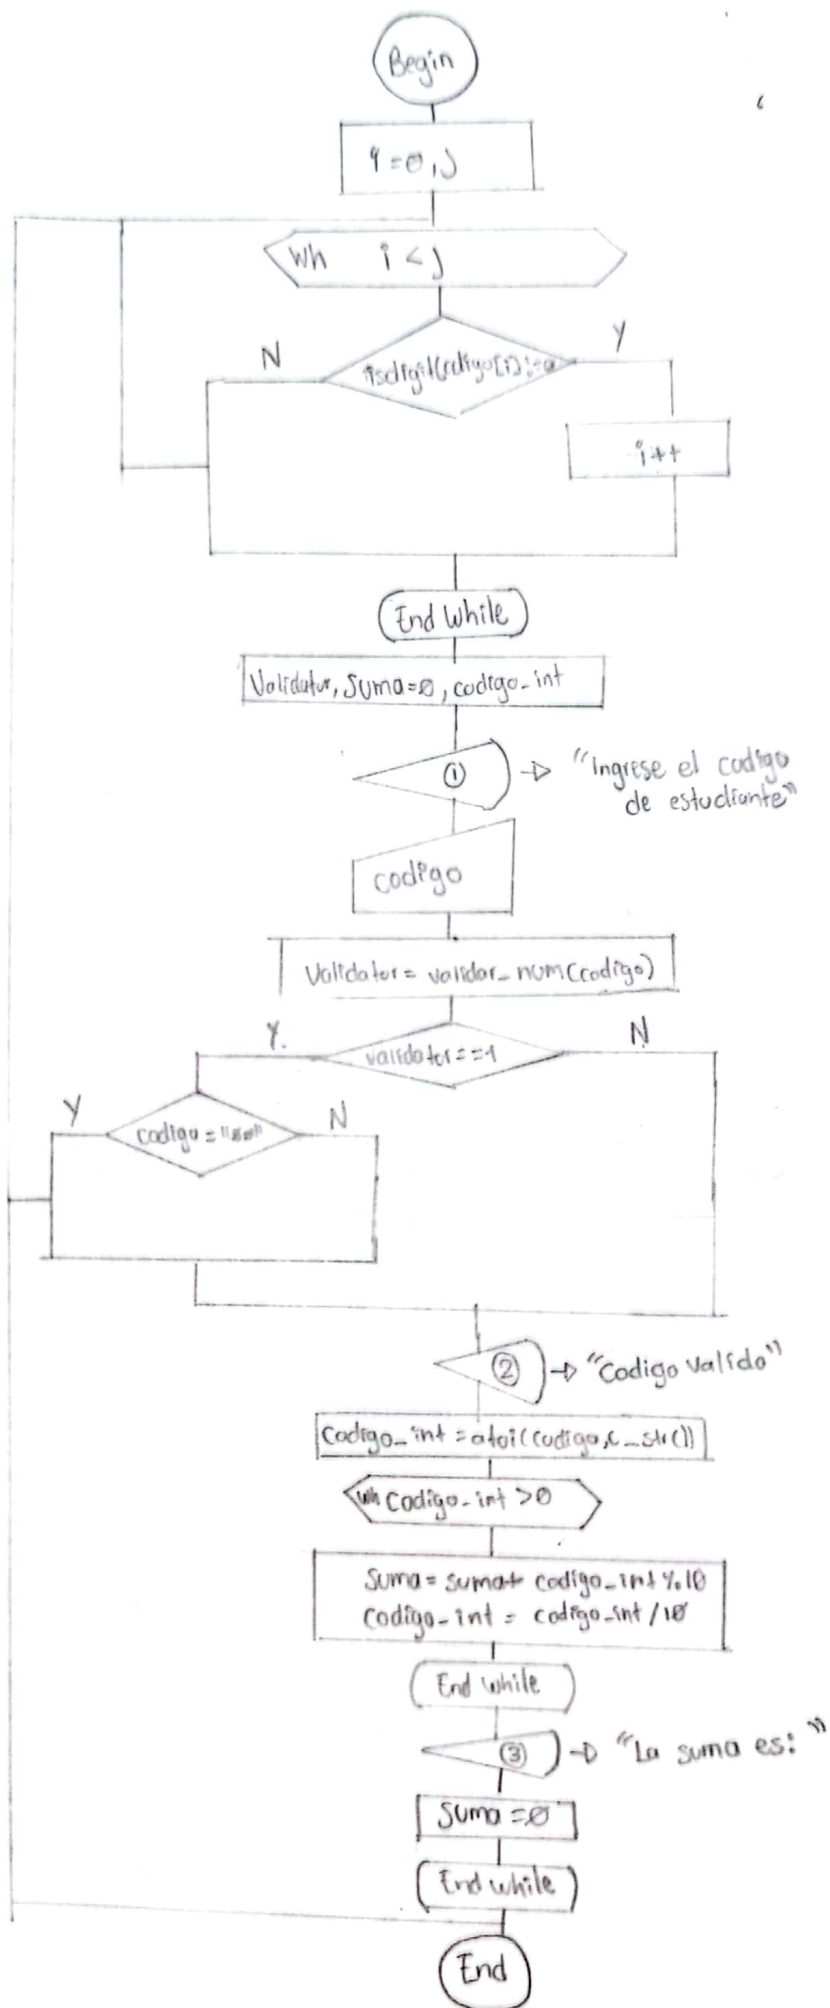 Begin
i=0, j
Wh i < j
N
Y
isdigit(codigo[i]) !=0
i++
End While
Validator, Suma=0, codigo_int
① → "Ingrese el codigo
de estudiante"
codigo
Validator = validar_num(codigo)
Y.
validator==1
N
Y
codigo =
N
② → "Codigo Valido"
Codigo_int = atoi(codigo.c_str())
wh Codigo_int >0
Suma = suma+ codigo_int %10
Codigo_int = codigo_int /10
End while
③ → "La suma es: "
Suma =0
End while
End